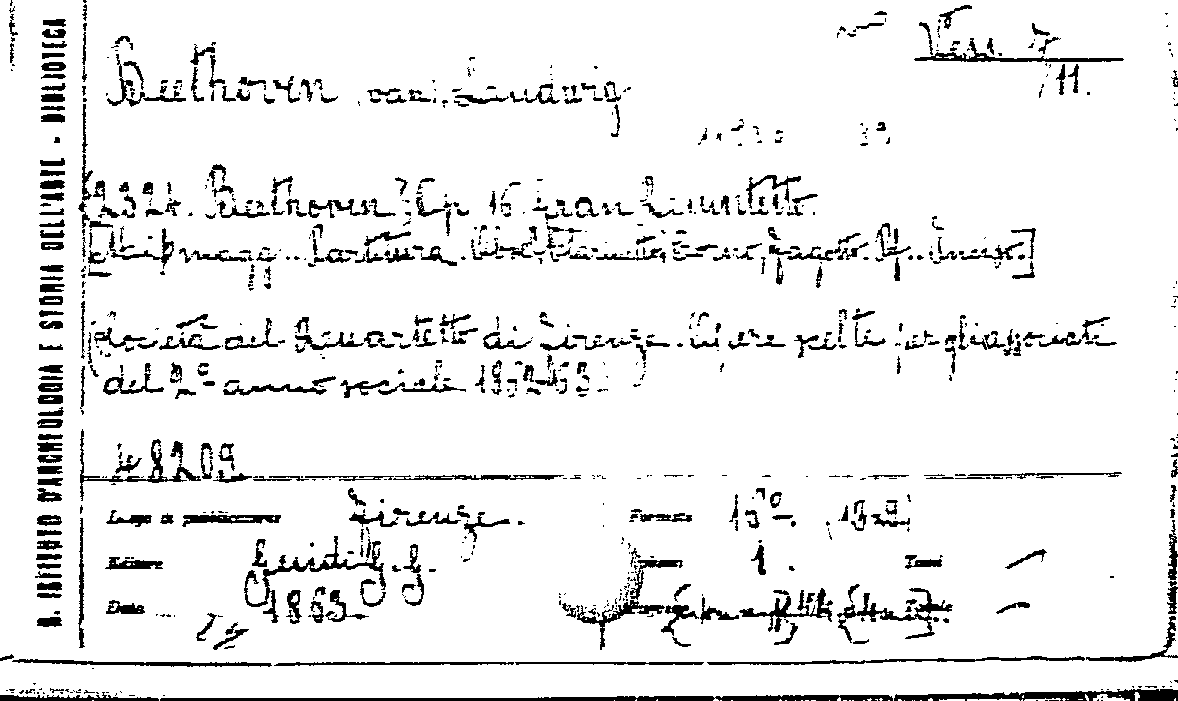 R. ISTITUTO D'ARCHEOLOGIA E STORIA DELL'ARTE - BIBLIOTECA
Vess. 7/11.
Beethoven, van, Ludwig
2324. Beethoven] Op. 16 Gran Quintetto.
[Mi b magg. Partitura. Oboe, Clarinetto, Corno, Fagotto. Pf. Incis.]
(Società del Quartetto di Firenze. Opere scelte per gli associati
del 2º anno sociale 1862-63)
48209
Luogo di pubblicazione Firenze.
Formato 15º.
Editore Guidi G. G.
1.
Tomi
Data 1863.